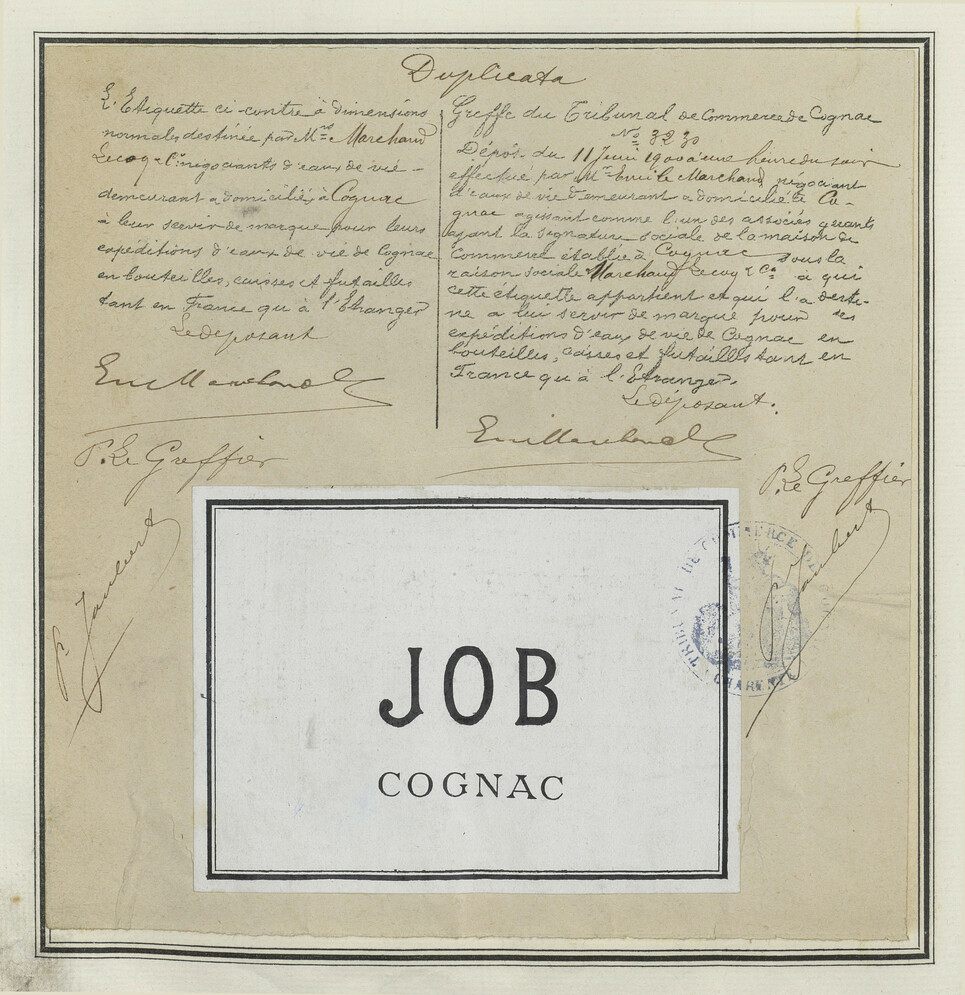 Duplicata
L'Etiquette ci-contre à dimensions
normales destinée par Mrs Marchand
Lecoq & Cie négociants d'eaux de vie -
demeurant & domiciliés à Cognac
à leur servir de marque pour leurs
expéditions d'eaux de vie de Cognac
en bouteilles, caisses et futailles
tant en France qu'à l'Etranger
Le déposant
Em Marchand
P. Le Greffier
Greffe du Tribunal de Commerce de Cognac
No 3230
Dépôt du 11 Juin 1900 à une heure du soir
effectué par Mr Emile Marchand négociant
d'eaux de vie demeurant & domicilié à Co-
gnac agissant comme l'un des associés gérants
ayant la signature sociale de la maison de
Commerce établie à Cognac sous la
raison sociale Marchand Lecoq & Cie à qui
cette étiquette appartient et qui l'a desti-
né à leur servir de marque pour des
expéditions d'eau de vie de Cognac en
bouteilles, caisses et futailles tant en
France qu'à l'Etranger.
Le déposant.
Em Marchand
P. Le Greffier
TRIBUNAL DE COMMERCE DE
CHARENTE
JOB
COGNAC